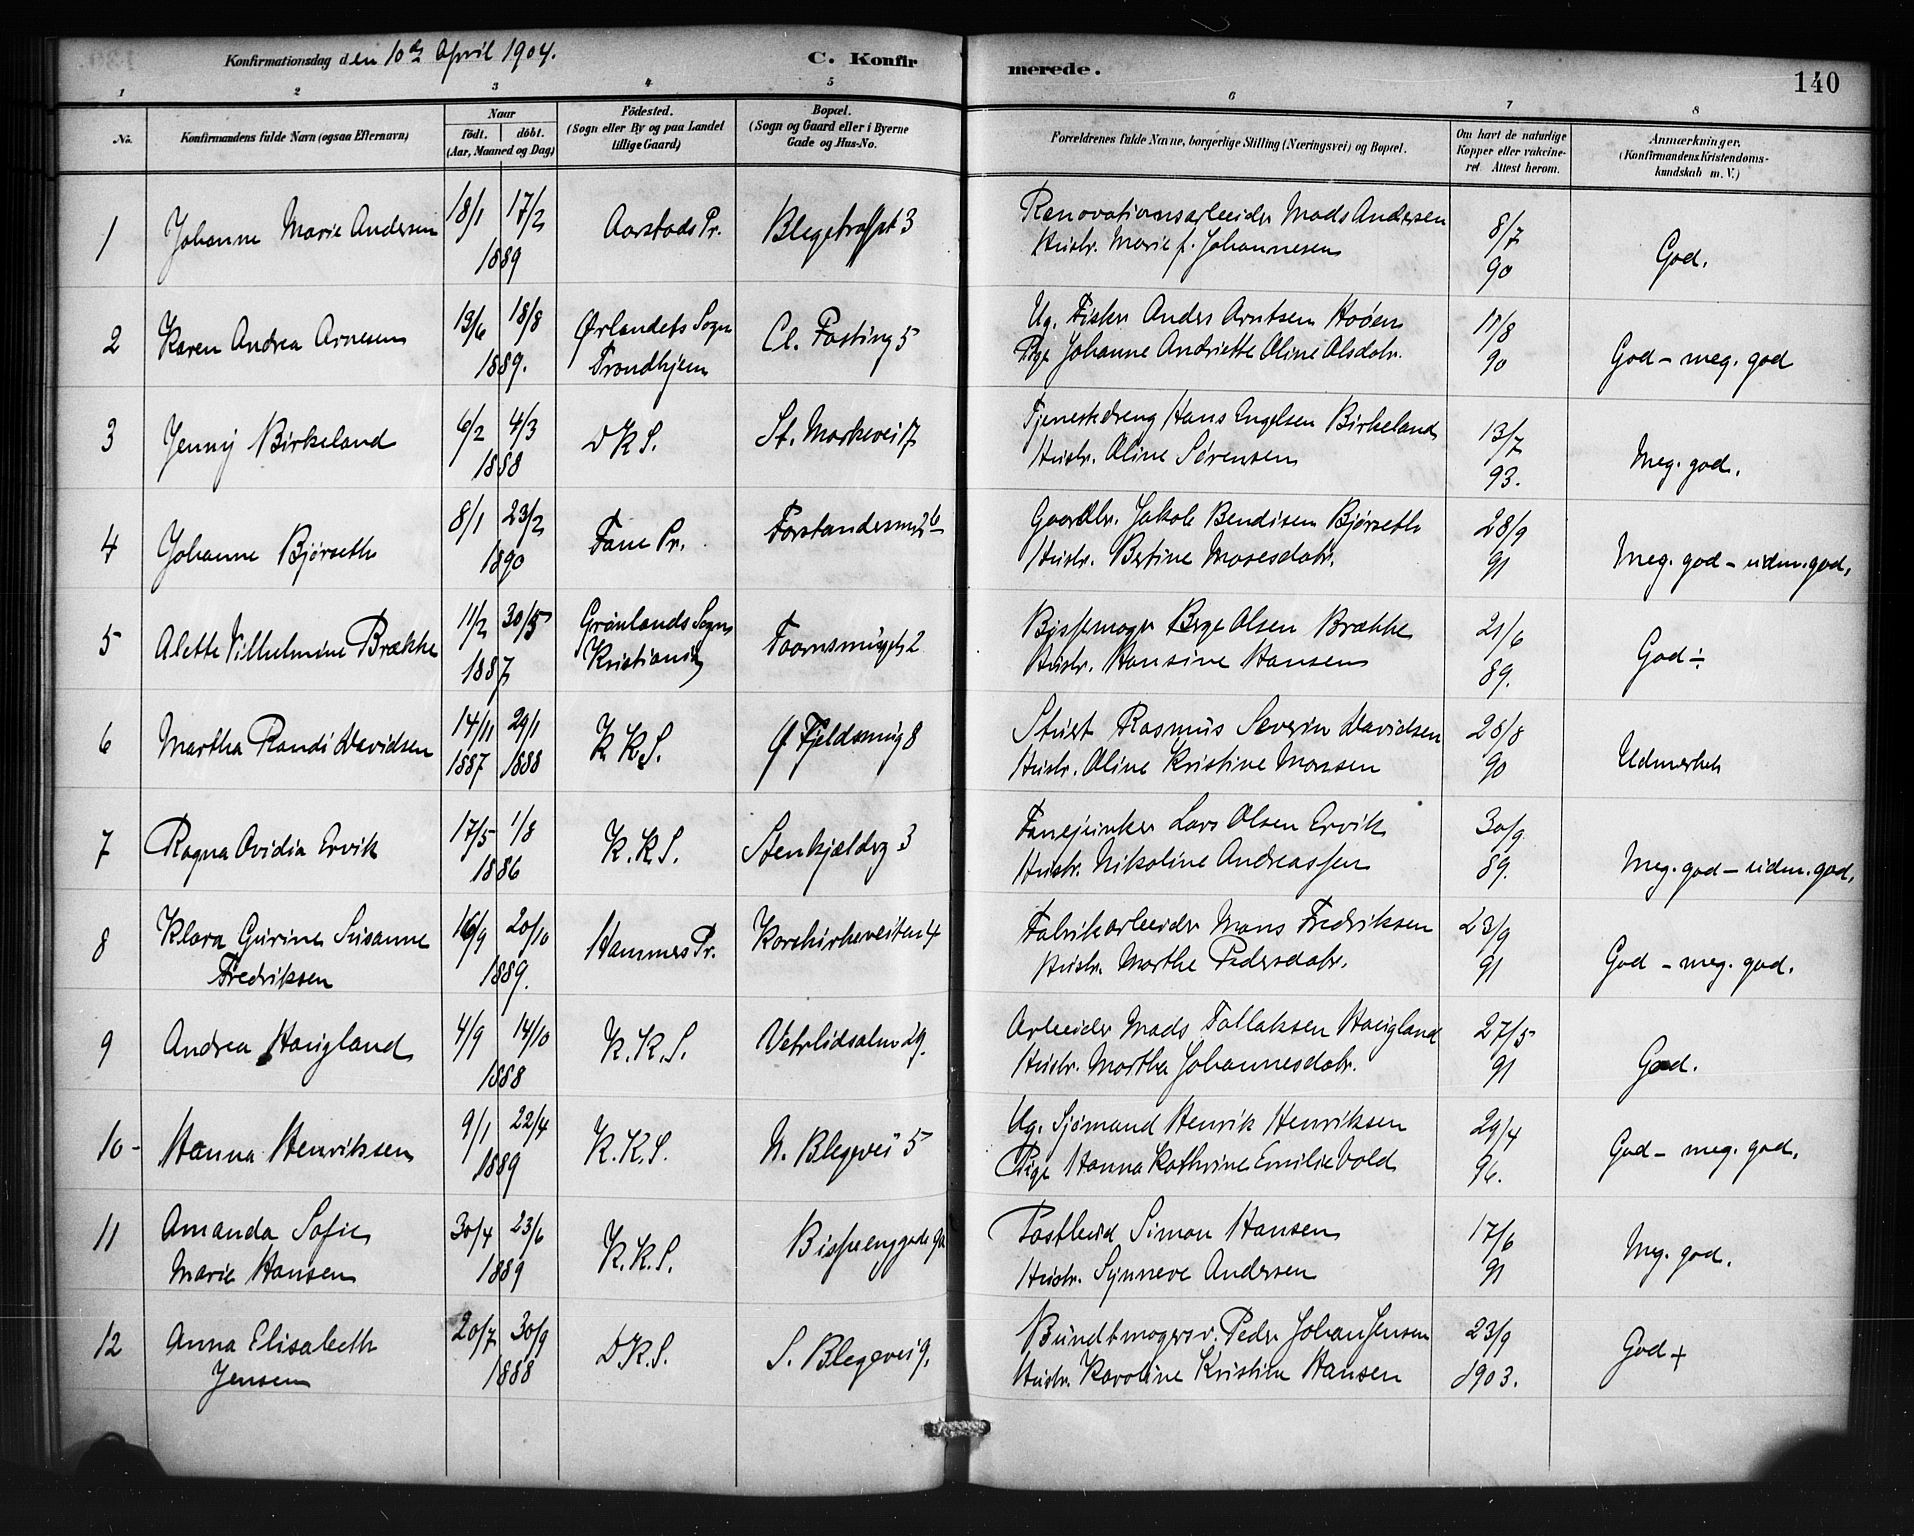 Konfirmationsdag den 10de April 1904.
C. Konfirmerede.
140
1 2 3 4 5 6 7 8
No.
Konfirmandens fulde Navn (ogsaa Efternavn)
Naar
födt. döbt.
(Aar, Maaned og Dag)
Födested.
(Sogn eller By og paa Landet
tillige Gaard)
Bopæl.
(Sogn og Gaard eller i Byerne
Gade og Hus-No.
Forældrenes fulde Navne, borgerlige Stilling (Næringsvei) og Bopæl.
Om havt de naturlige
Kopper eller vakcine-
ret. Attest herom.
Anmærkninger.
(Konfirmandens Kristendoms-
kundskab m. V.)
1 Johanne Marie Andersen 18/1 17/2 1889 Aarstads Pr. 3
Renovationsarbeider Mads Andersen
Hustr. Marie f. Johannesen
8/7 90 God.
2 Karen Andrea Arnesen 19/6 18/8 1889. Ørlandets Sogn Trondhjem Cl. Fasting 5
Ug. Fisker Anders Arntsen Hoøen
Pige Johanne Andriette Oline Olsdatr.
11/8 90 God - meg. god
3 Jenny Birkeland 6/2 4/3 1888 DKS. St. Markevei 17
Tjenestedreng Hans Engelsen Birkeland
Hustr. Oline Sørensen
13/7 93. Meg. god.
4 Johanne Bjørseth 8/1 23/2 1890 Fane Pr. Forstandersmug 6
Gaardbr. Jakob Bendisen Bjørseth
Hustr. Bertine Mosesdatr.
28/9 91 Meg. god - udm. god.
5 Alette Vilhelmine Brække 11/2 30/5 1887 Grønlands Sogn Kristiania 2
Børge Olsen Brække
Hustr. Hansine Hansen
21/6 89. God ÷
6 Martha Randi Davidsen 14/11 1887 29/1 1888 K.K.S. Ø Fjeldsmug 8
Stuert Rasmus Severin Davidsen
Hustr. Oline Kristine Monsen
28/8 90 Udmerket
7 Ragna Ovidia Ervik 17/5 1/8 1886 K.K.S. Stenkjælderg 3
Fanejunker Lars Olsen Ervik
Hustr. Nikoline Andreassen
30/9 89. Meg. god - udm. god.
8 Klara Gurine Susanne
Fredriksen 16/9 20/10 1889. Hammers Pr. Korskirkeveiten 4
Fabrikarbeider Mons Fredriksen
Hustr. Marthe Pedersdatr.
23/9 91 God - meg. god.
9 Andrea Haugland 4/9 14/10 1888 K.K.S. Vetrlidsalm 29.
Arbeider Mads Tollaksen Haugland
Hustr. Martha Johannesdatr.
27/5 91 God.
10 - Hanna Henriksen 9/1 22/4 1889 K.K.S. N. Blegevei 5
Ug. Sjømand Henrik Henriksen
Pige Hanna Kathrine Emilie Vold
29/4 96. God - meg. god.
11 Amanda Sofie
Marie Hansen 30/4 23/6 1889 K.K.S. Bispenggade
Postbud Simon Hansen
Hustr. Synneve Andersen
17/6 91 Meg. god.
12 Anna Elisabeth
Jensen 20/7 30/9 1888 DKS. S. Blegevei 9.
Bundtmagersv. Peder Johan Jensen
Hustr. Karoline Kristine Hansen
23/9 1903. God +